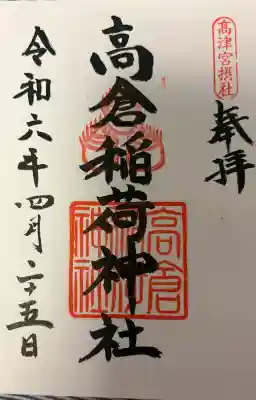 高津宮摂社
奉拝
高倉稲荷神社
高倉
稲荷
神社
令和六年四月二十五日